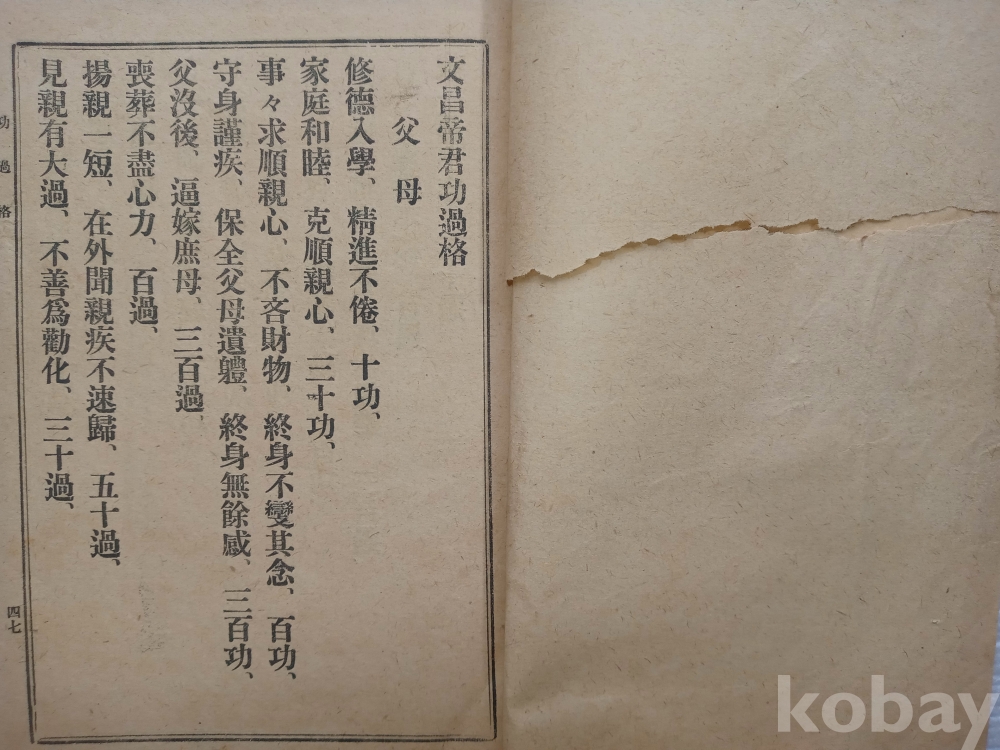 文昌帝君功過格
父母
修德入學、精進不倦、十功、
家庭和睦、克順親心、三十功、
事々求順親心、不吝財物、終身不變其念、百功、
守身謹疾、保全父母遺軆、終身無餘慼、三百功、
父沒後、逼嫁庶母、三百過、
喪葬不盡心力、百過、
揚親一短、在外聞親疾不速歸、五十過、
見親有大過、不善爲勸化、三十過、
功過格
四七
kobay